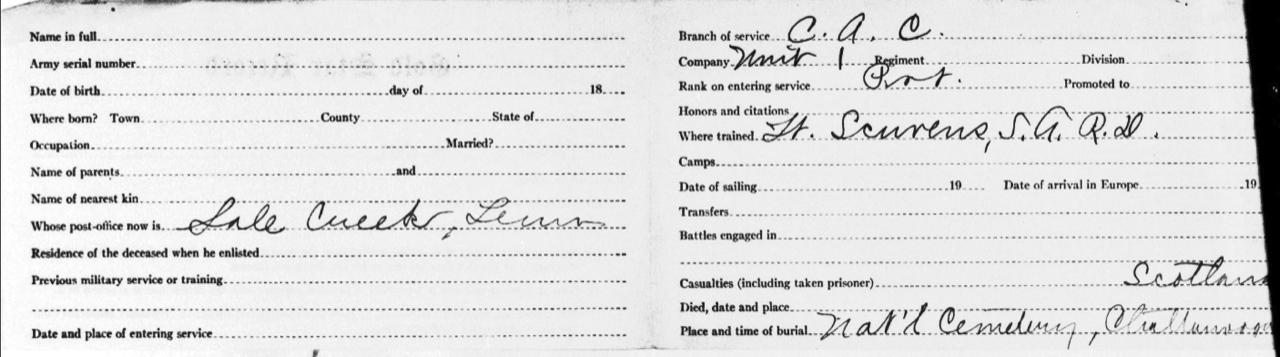 Name in full
Army serial number
Date of birth day of 18
Where born? Town County State of
Occupation Married?
Name of parents and
Name of nearest kin
Whose post-office now is Sale Creek, Tenn
Residence of the deceased when he enlisted
Previous military service or training
Date and place of entering service
Branch of service C. A. C.
Company Unit 1 Regiment Division
Rank on entering service Pvt. Promoted to
Honors and citations
Where trained Ft. Scurvens, S. A. R. D.
Camps
Date of sailing 19 Date of arrival in Europe 19
Transfers
Battles engaged in
Casualties (including taken prisoner) Scotland
Died, date and place
Place and time of burial Nat'l Cemetery, Chattanooga